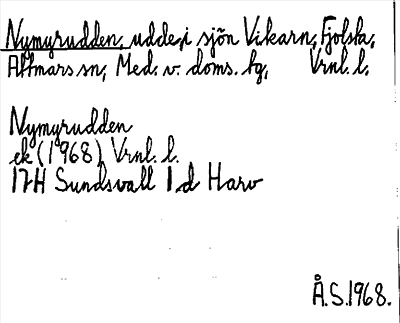 Nymyrudden, udde, i sjön Vikarn, Fjolsta,
Attmars sn, Med. v. doms. tg, Vrnl. l.
Nymyrudden
ek (1968) Vrnl. l.
17H Sundsvall 1 d Harv
Å.S. 1968.